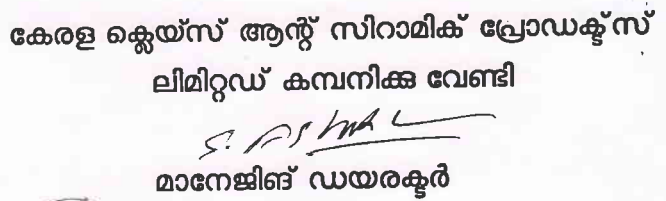 കേരള ക്ലെയ്സ് ആന്റ് സിറാമിക് പ്രോഡക്ട്സ്
ലിമിറ്റഡ് കമ്പനിക്കു വേണ്ടി
മാനേജിങ് ഡയരക്ടർ